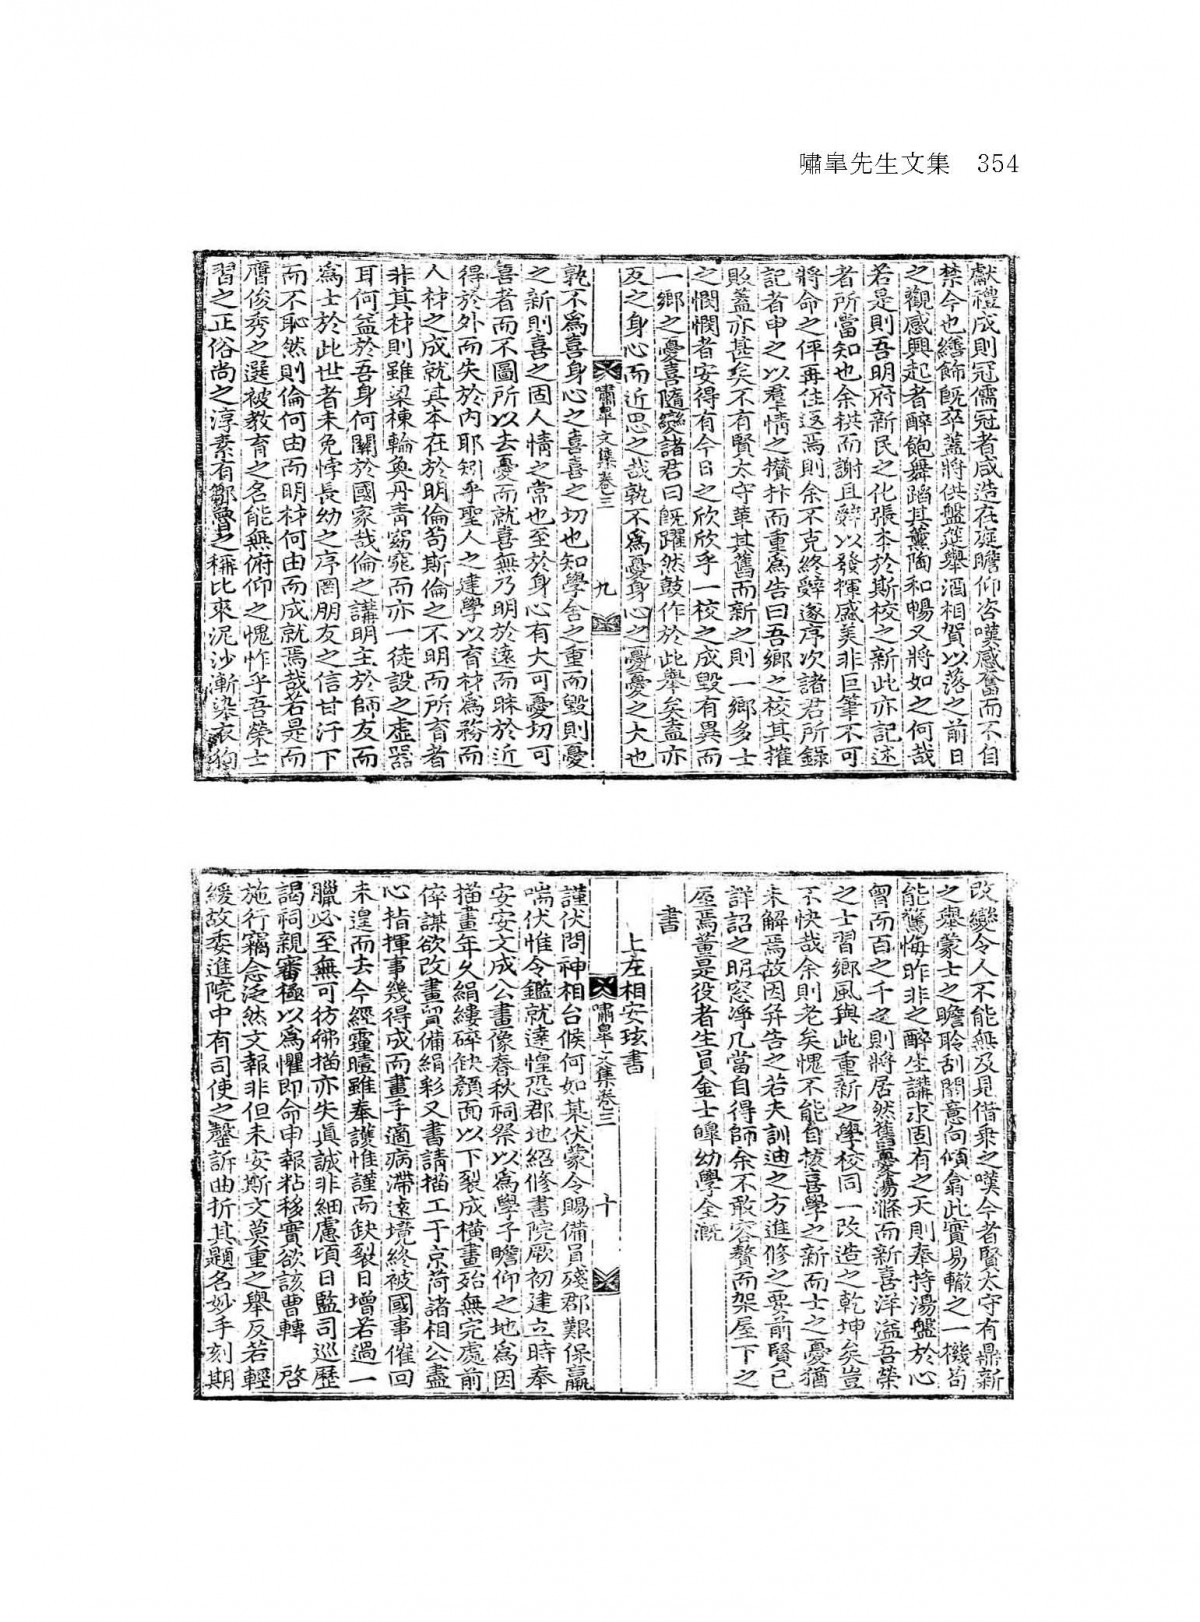 嘯皐先生文集 354
獻禮成則冠儒冠者咸造在庭瞻仰咨嘆感奮而不自
禁今也繕飾旣卒蓋將供盤筵擧酒相賀以落之前日
之觀感興起者醉飽舞蹈其薰陶和暢又將如之何哉
若是則吾明府新民之化張本於斯校之新此亦記述
者所當知也余拱而謝且辭以發揮盛美非巨筆不可
將命之伻再往返焉則余不克終辭遂序次諸君所錄
記者申之以羣情之攢抃而重爲告曰吾鄕之校其摧
敗蓋亦甚矣不有賢太守革其舊而新之則一鄕多士
之憫憫者安得有今日之欣欣乎一校之成毀有異而
一鄕之憂喜隨變諸君曰旣躍然鼓作於此擧矣盍亦
反之身心而近思之哉孰不爲憂身心之憂憂之大也
嘯皐文集卷三 九
孰不爲喜身心之喜喜之切也知學舍之重而毀則憂
之新則喜之固人情之常也至於身心有大可憂切可
喜者而不圖所以去憂而就喜無乃明於遠而昧於近
得於外而失於內耶矧乎聖人之建學以育材爲務而
人材之成就其本在於明倫苟斯倫之不明而所育者
非其材則雖梁棟輪奐丹靑窈窕而亦一徒設之虛器
耳何益於吾身何關於國家哉倫之講明主於師友而
爲士於此世者未免悖長幼之序罔朋友之信甘汙下
而不恥然則倫何由而明材何由而成就焉哉若是而
膺俊秀之選被敎育之名能無俯仰之愧怍乎吾榮士
習之正俗尙之淳素有鄒魯之稱比來泥沙漸染衣狗
改變令人不能無及見借乘之嘆今者賢太守有鼎新
之擧蒙士之瞻聆刮開意向傾翕此實易轍之一機苟
能驚悔昨非之醉生講求固有之天則奉持湯盤於心
曾而百之千之則將居然舊憂蕩滌而新喜洋溢吾榮
之士習鄕風與此重新之學校同一改造之乾坤矣豈
不快哉余則老矣愧不能自拔喜學之新而士之憂猶
未解焉故因幷告之若夫訓迪之方進修之要前賢已
詳詔之明窓淨几當自得師余不敢容贅而架屋下之
屋焉董是役者生員金士皥幼學全漑
書
上左相安玹書
嘯皐文集卷三 十
謹伏問神相台候何如某伏蒙令賜備員殘郡艱保羸
喘伏惟令鑑就達惶恐郡地紹修書院厥初建立時奉
安安文成公畫像春秋祠祭以爲學子瞻仰之地爲因
描畫年久絹縷碎缺顏面以下裂成橫畫殆無完處前
倅謀欲改畫質備絹彩又書請描工于京荷諸相公盡
心指揮事幾得成而畫手適病滯遠境終被國事催回
未遑而去今經霾曀雖奉護惟謹而缺裂日增若過一
臘必至無可彷彿描亦失眞誠非細慮頃日監司巡歷
謁祠親審極以爲懼卽命申報粘移實欲該曹轉 啓
施行竊念泛然文報非但未安斯文莫重之擧反若輕
緩故委進院中有司使之罄訴曲折其題名妙手刻期